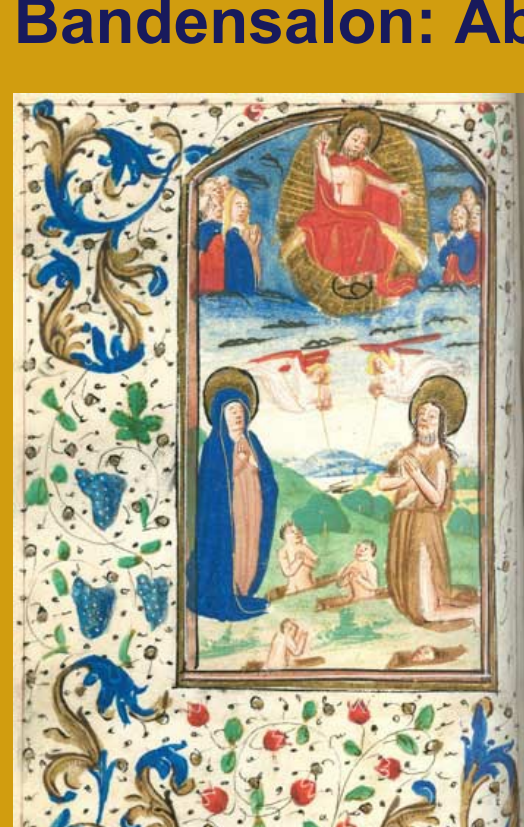 Bandensalon: Ab